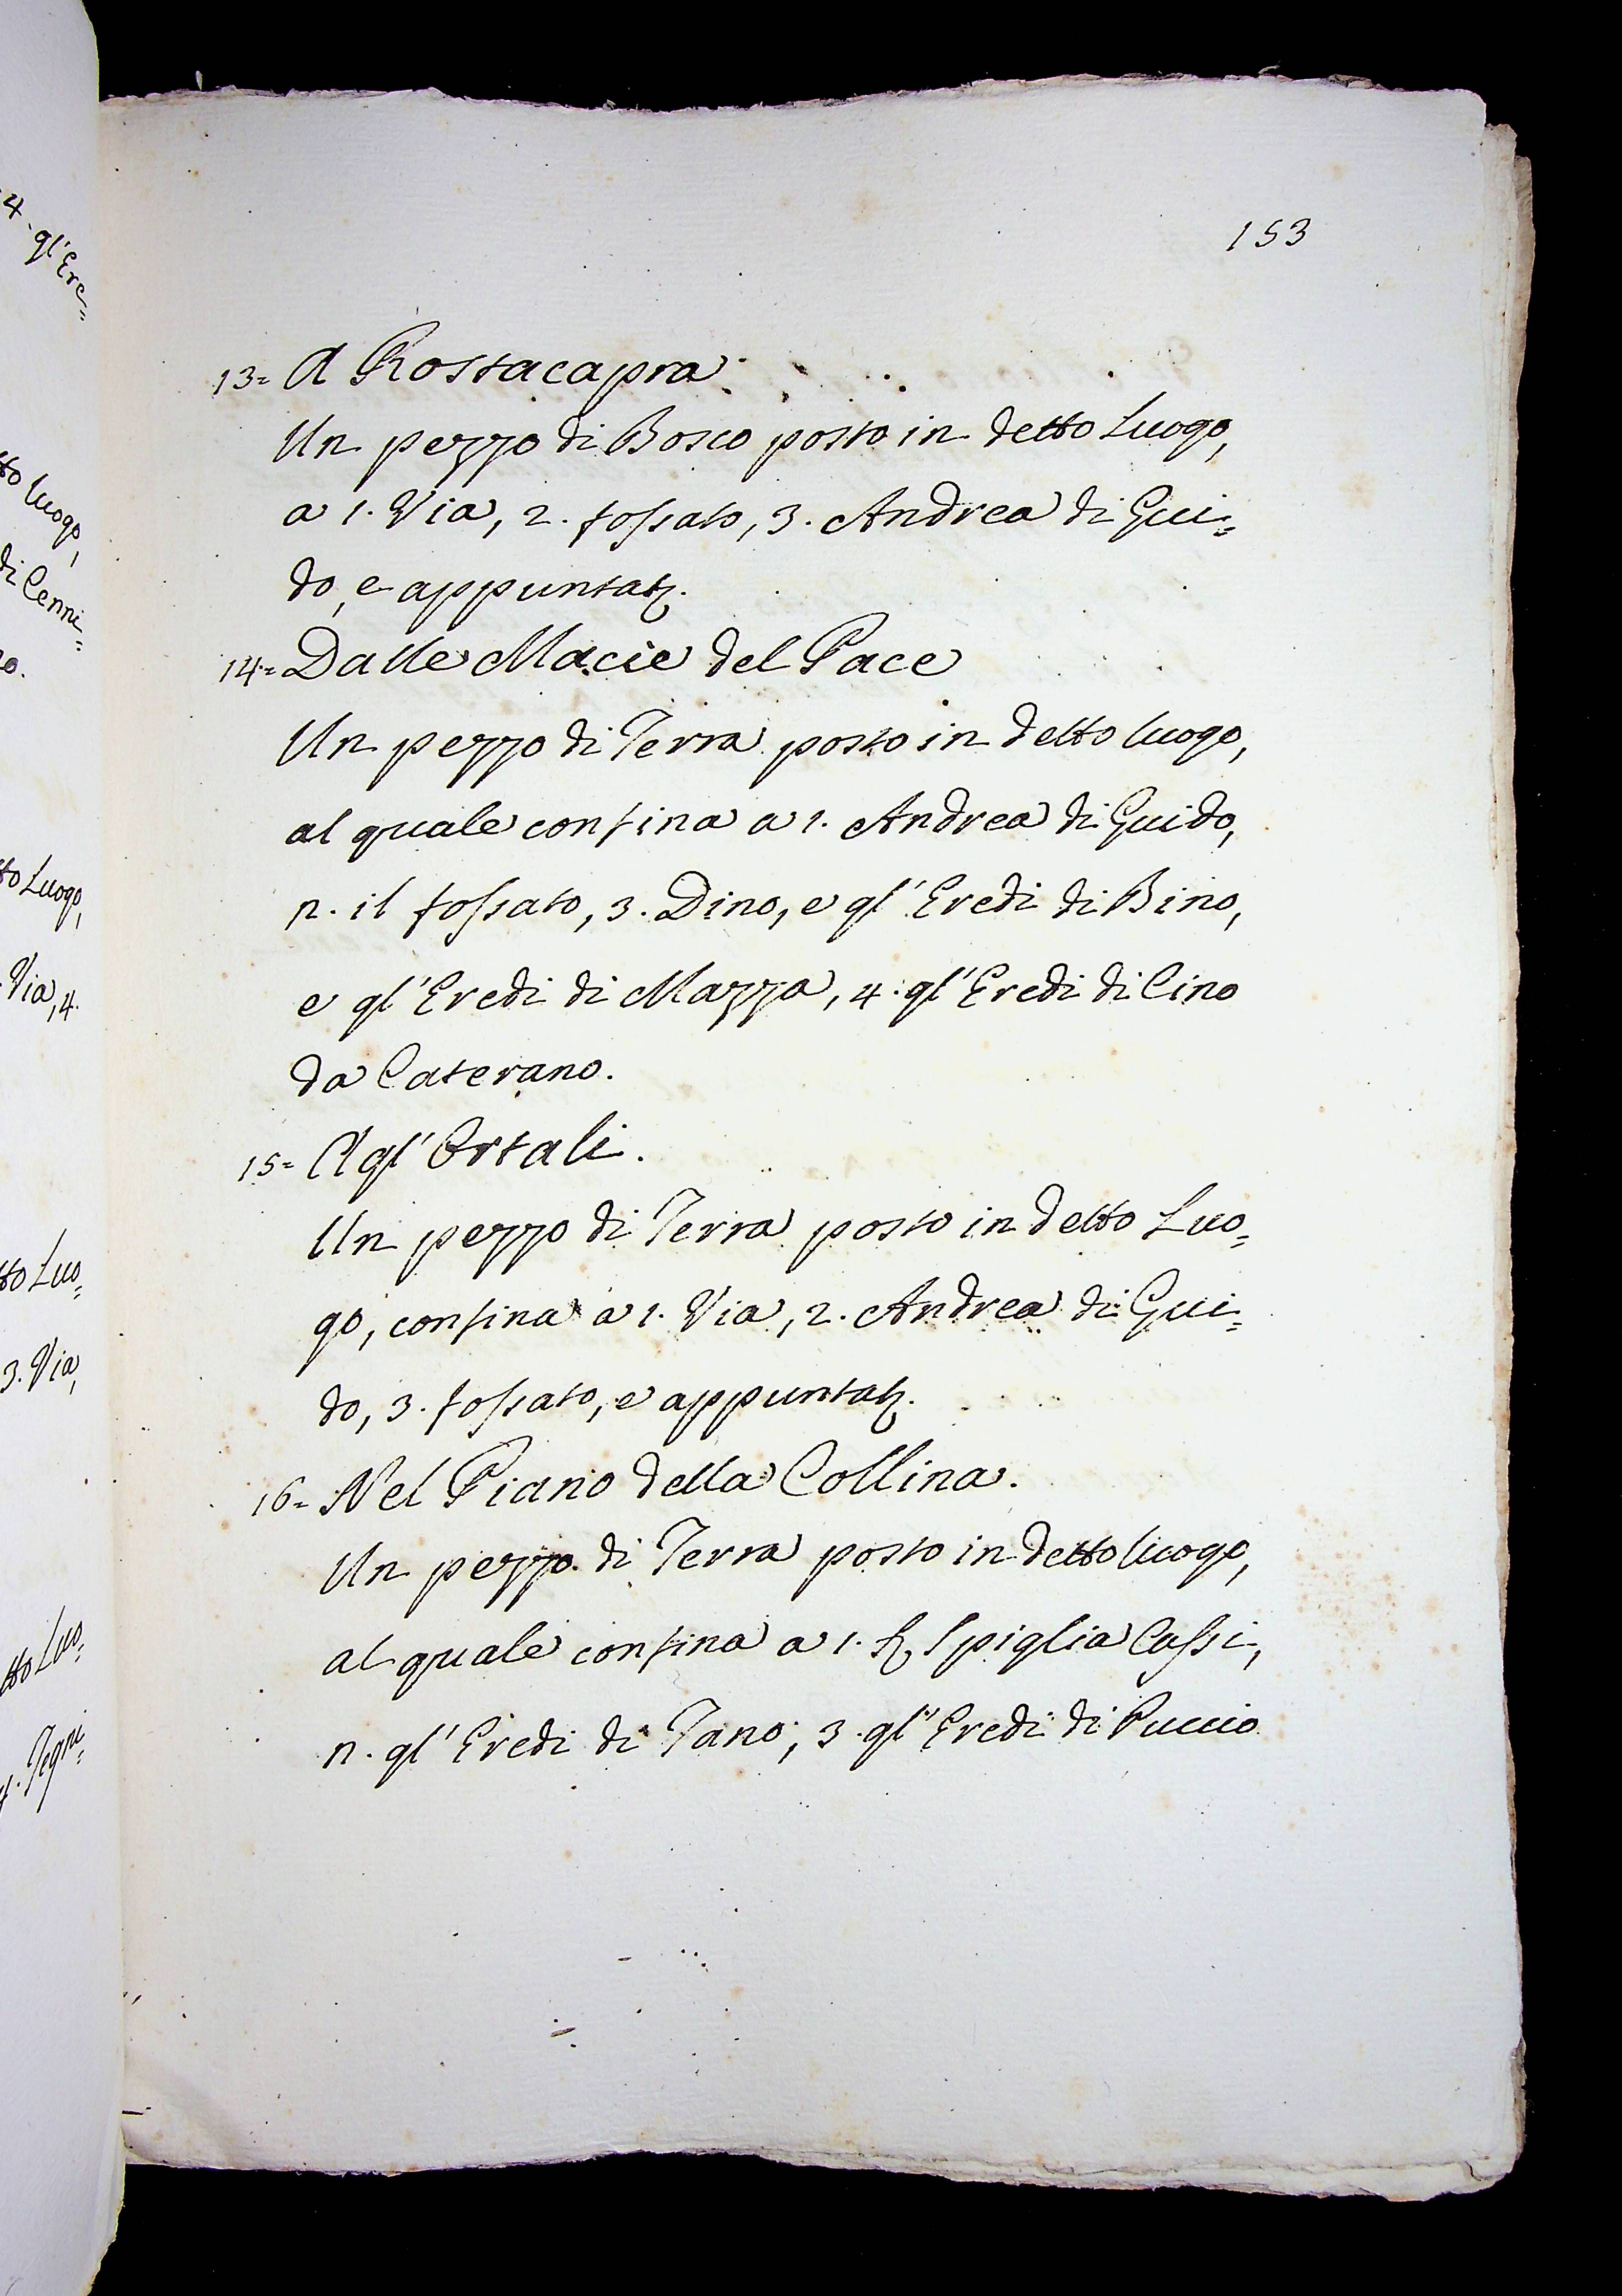 4. gl'Ere=
tto luogo,
di Cenni=
no.
tto Luogo,
Via, 4.
tto Luo=
3. Via,
tto Luo=
4. Tegni=
153
13= A Rostacapra
Un pezzo di Bosco posto in detto Luogo,
a 1. Via, 2. fossato, 3. Andrea di Gui=
do, e appuntatz.
14= Dalle Macie del Pace
Un pezzo di Terra posto in detto luogo,
al quale confina a 1. Andrea di Guido,
2. il fossato, 3. Dino, e gl'Eredi di Bino,
e gl'Eredi di Mazza, 4. gl'Eredi di Cino
da Caterano.
15= Agl'Ortali.
Un pezzo di Terra posto in detto Luo=
go, confina a 1. Via, 2. Andrea di Gui=
do, 3. fossato, e appuntatz.
16= Nel Piano della Collina.
Un pezzo di Terra posto in detto luogo,
al quale confina a 1. Spiglia Cassi,
2. gl'Eredi di Tano, 3. gl'Eredi di Puccio